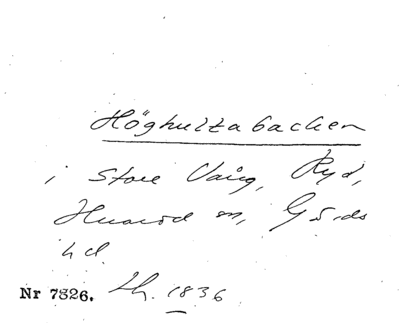 Höghultabacken
i Store Vång, Ryd,
Hunnröd sn, Gärds
hd
Nr 7326. Lh. 1836